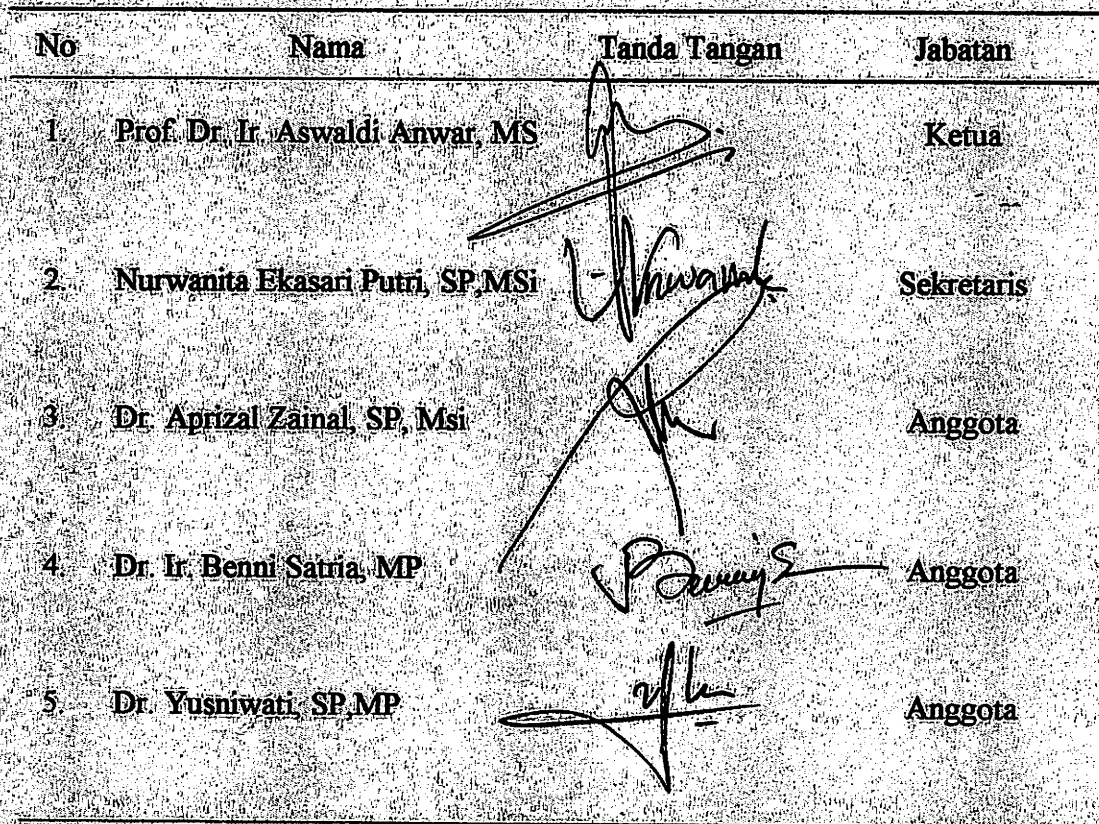 No Nama Tanda Tangan Jabatan
1. Prof. Dr. Ir. Aswaldi Anwar, MS Ketua
2. Nurwanita Ekasari Putri, SP,MSi Sekretaris
3. Dr. Aprizal Zainal, SP, Msi Anggota
4. Dr. Ir. Benni Satria, MP Anggota
5. Dr. Yusniwati, SP,MP Anggota